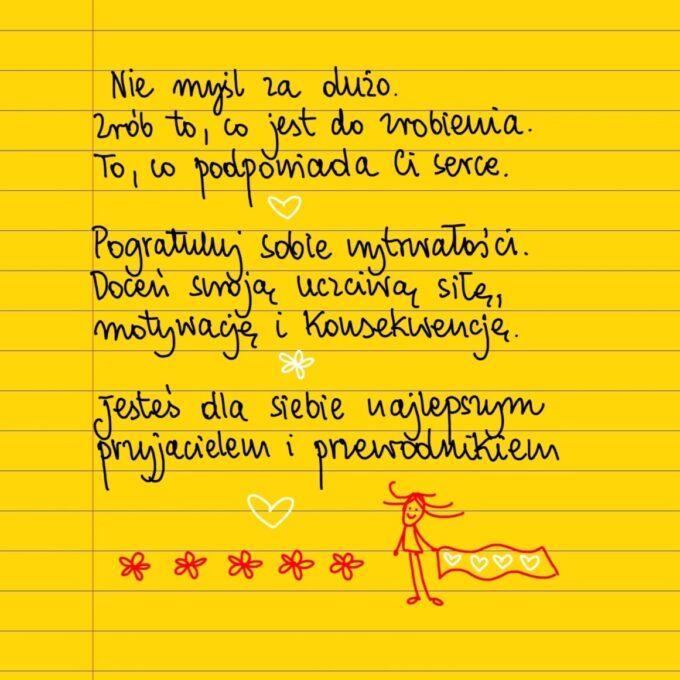 Nie myśl za dużo.
Zrób to, co jest do zrobienia.
To, co podpowiada Ci serce.
Pogratuluj sobie wytrwałości.
Doceń swoją uczciwą siłę,
motywację i konsekwencję.
Jesteś dla siebie najlepszym
przyjacielem i przewodnikiem